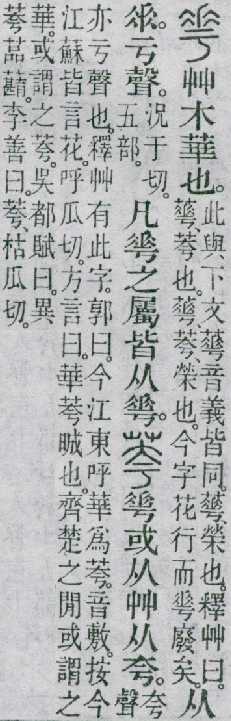 𠌶艸木華也。此與下文蕐音義皆同。蕐、榮也。釋艸曰。蕐、荂也。蕐、荂、榮也。今字花行而𠌶廢矣。从
𠂹。亏聲。況于切。五部。凡𠌶之屬皆从𠌶。荂𠌶或从艸从夸。夸聲
亦亏聲也。釋艸有此字。郭曰。今江東呼華爲荂。音敷。按今
江蘇皆言花。呼瓜切。方言曰。華荂晠也。齊楚之閒或謂之
華。或謂之荂。吳都賦曰。異
荂蓲蘛。李善曰。荂、枯瓜切。